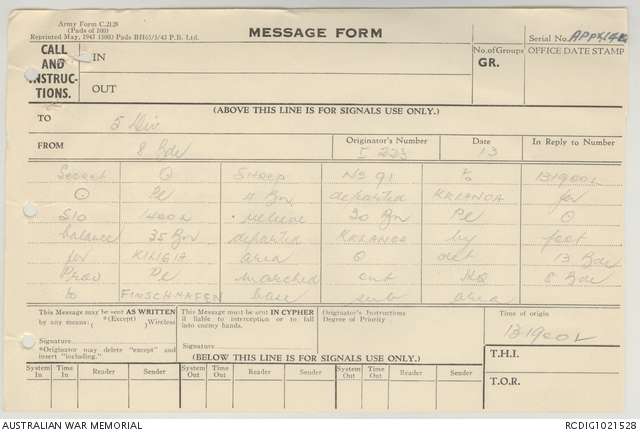 Army Form C.2128
(Pads of 100)
Reprinted May, 1943 (300) Pads BH63/5/43 P.B. Ltd.
MESSAGE FORM
Serial No.
CALL AND INSTRUC-TIONS.
IN
OUT
No. of Groups
GR.
OFFICE DATE STAMP
(ABOVE THIS LINE IS FOR SIGNALS USE ONLY.)
TO 5 Div
FROM 8 Bde
Originator's Number
I 223
Date
13
In Reply to Number
Secret O Sitrep No 91 to 131900L
O Pl Bn departed KELANOA for
SIO 1400L relieve 30 Bn Pl O
balance 35 Bn departed KELANOA by foot
for KILIGIA area O det 13 Bde
Prov Pl marched out HQ 8 Bde
to FINSCHHAFEN base sub area
This message may be sent AS WRITTEN
by any means. (Except) Wireless
Signature
*Originator may delete "except" and
insert "including."
This Message must be sent IN CYPHER
if liable to interception or to fall
into enemy hands.
Signature
Originator's Instructions
Degree of Priority
Time of origin
131900L
(BELOW THIS LINE IS FOR SIGNALS USE ONLY.)
T.H.I.
T.O.R.
System In
Time In
Reader
Sender
System Out
Time Out
Reader
Sender
System Out
Time Out
Reader
Sender
AUSTRALIAN WAR MEMORIAL
RCDIG1021528